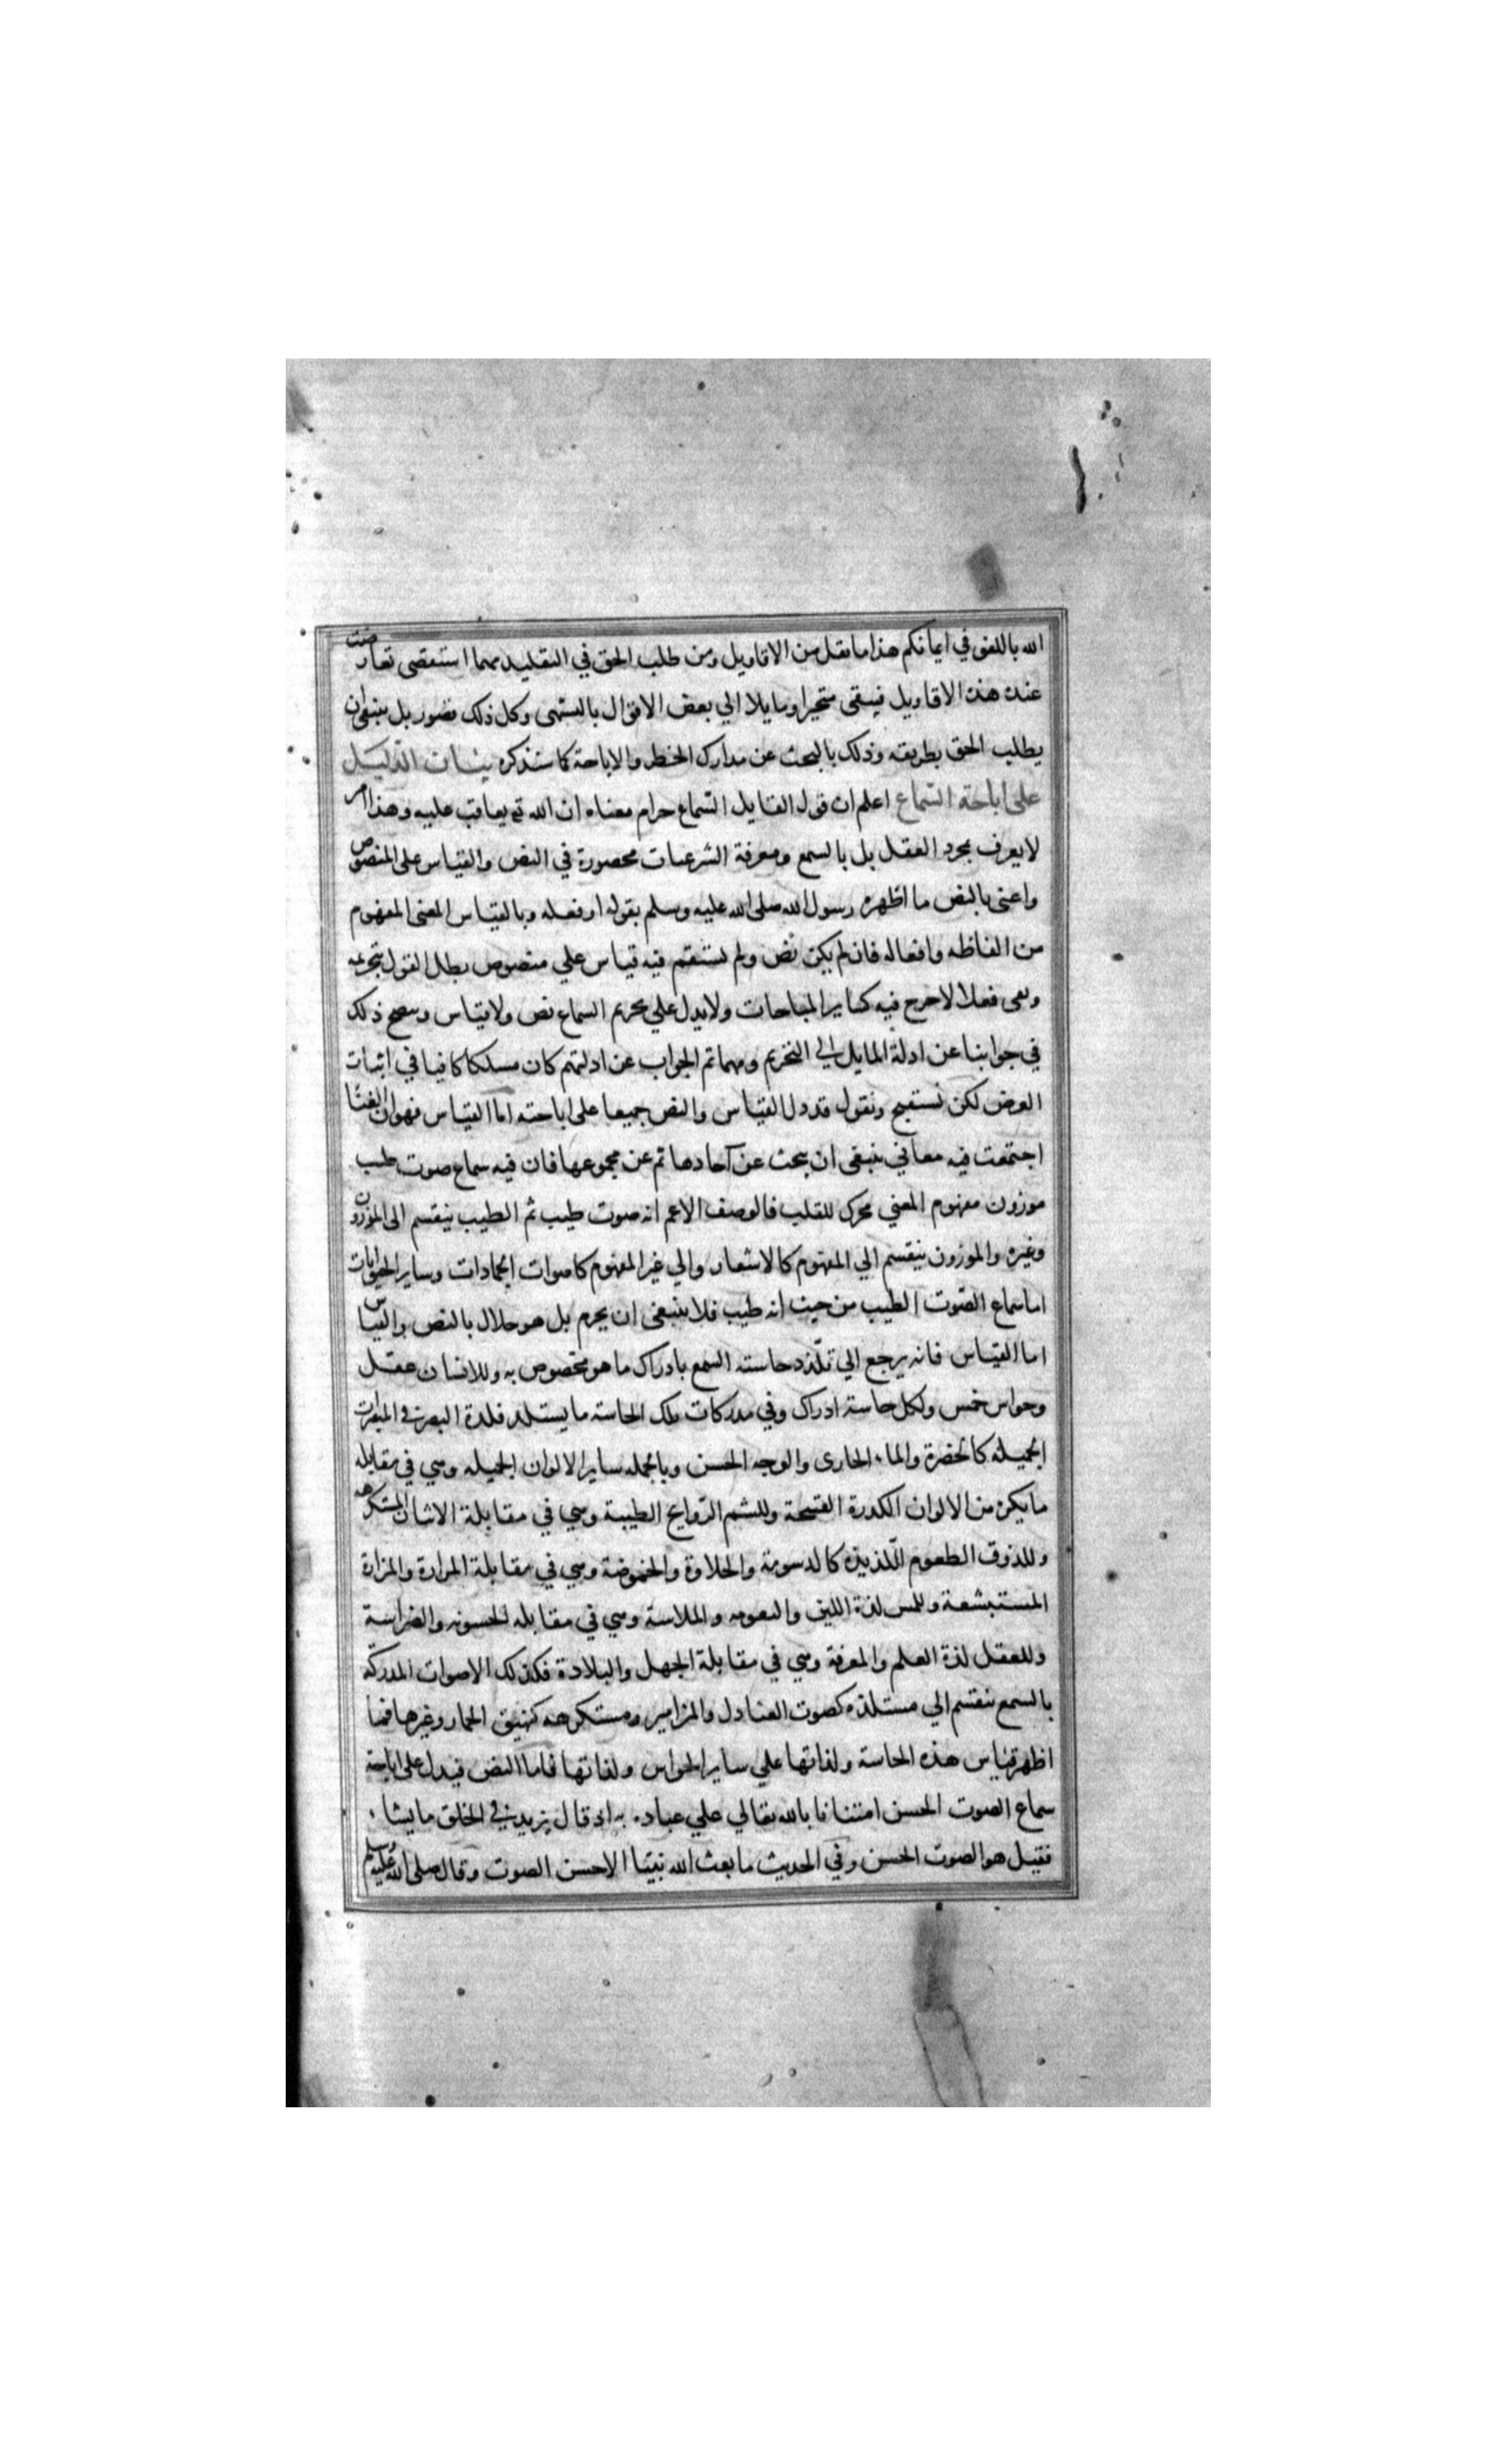 الله باللغو في ايمانكم هذا ما نقل من الاقاويل ومن طلب الحق في التقليد مهما استقصى تعارضت
عنده هذه الاقاويل فيبقى متحيرا ومايلا الي بعض الاقوال بالتشهي وكل ذلك قصور بل ينبغي ان
يطلب الحق بطريقه وذلك بالبحث عن مدارك الحظر والاباحة كما سنذكره بيان الدليل
على اباحة السماع اعلم ان قول القايل السماع حرام معناه ان الله تع يعاقب عليه وهذا امر
لا يعرف بمجرد العقل بل بالسمع ومعرفة الشرعيات محصورة في النص والقياس على المنصوص
واعنى بالنص ما اظهره رسول الله صلى الله عليه وسلم بقوله او فعله وبالقياس المعنى المفهوم
من الفاظه وافعاله فان لم يكن نص ولم يستقم فيه قياس علي منصوص بطل القول بتحريمه
وبقى فعلا لا حرج فيه كساير المباحات ولا يدل علي تحريم السماع نص ولا قياس ويتضح ذلك
في جوابنا عن ادلة المايل الي التحريم ومهما تم الجواب عن ادلتهم كان مسلكا كافيا في اثبات
الغرض لكن نستفتح ونقول قد دل القياس والنص جميعا على اباحته اما القياس فهو ان الغنا
اجتمعت فيه معاني ينبغى ان يبحث عن آحادها ثم عن مجموعها فان فيه سماع صوت طيب
موزون مفهوم المعني محرك للقلب فالوصف الاعم انه صوت طيب ثم الطيب ينقسم الى الموزون
وغيره والموزون ينقسم الي المفهوم كالاشعار والي غير المفهوم كاصوات الجمادات وساير الحيوانات
اما سماع الصوت الطيب من حيث انه طيب فلا ينبغى ان يحرم بل هو حلال بالنص والقياس
اما القياس فانه يرجع الي تلذذ حاسته السمع بادراك ما هو مخصوص به وللانسان عقل
وحواس خمس ولكل حاسة ادراك وفي مدركات تلك الحاسة ما يستلذ فلذة البصر في المبصرات
الجميلة كالخضرة والماء الجارى والوجه الحسن وبالجمله ساير الالوان الجميله وهي في مقابله
ما يكره من الالوان الكدرة القبيحة وللشم الروايح الطيبة وهي في مقابلة الانتان المستكرهه
وللذوق الطعوم اللذيذه كالدسومة والحلاوة والحموضة وهي في مقابلة المرارة والمزازة
المستبشعة وللمس لذة اللين والنعومه والملاسة وهي في مقابله الخسونه والضراسة
وللعقل لذة العلم والمعرفة وهي في مقابلة الجهل والبلادة فكذلك الاصوات المدركة
بالسمع ينقسم الي مستلذه كصوت العنادل والمزامير ومستكرهه كنهيق الحمار وغيرها فما
اظهر قياس هذه الحاسة ولذاتها علي ساير الحواس ولذاتها فاما النص فيدل على اباحة
سماع الصوت الحسن امتنانا بالله تعالي علي عباده به اذ قال يزيد في الخلق ما يشاء
فقيل هو الصوت الحسن وفي الحديث ما بعث الله نبيا الا حسن الصوت وقال صلى الله عليه وسلم